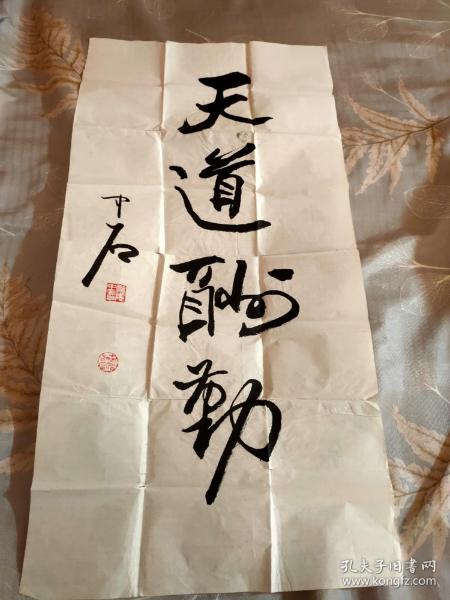 天道酬勤
中石
孔夫子旧书网
www.kongfz.com